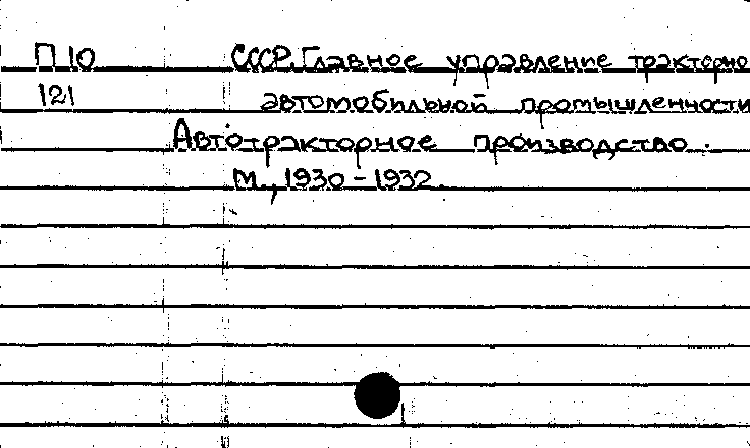 П 10 СССР. Главное управление тракторно
121 автомобильной промышленности
Автотракторное производство.
М., 1930-1932.